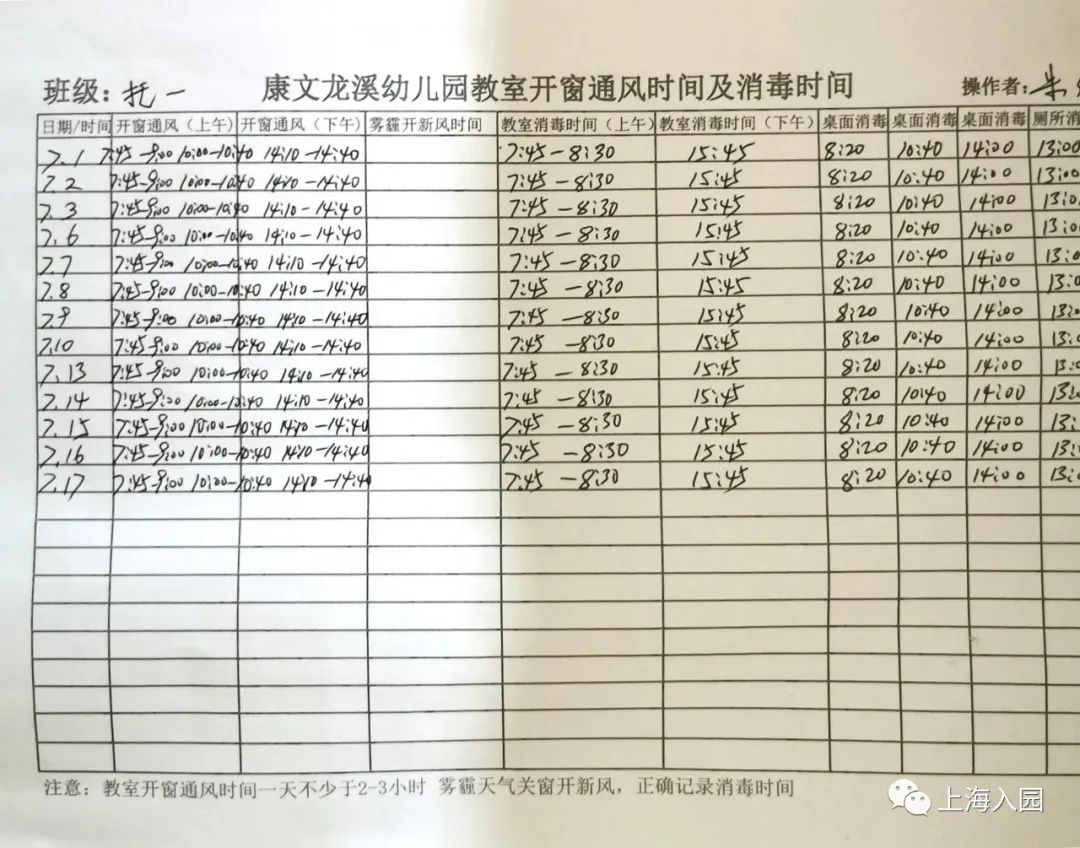 班级: 托一 康文龙溪幼儿园教室开窗通风时间及消毒时间 操作者: 朱
日期/时间 开窗通风（上午） 开窗通风（下午） 雾霾开新风时间 教室消毒时间（上午） 教室消毒时间（下午） 桌面消毒 桌面消毒 桌面消毒 厕所消
7.1 7:45-9:00 10:00-10:40 14:10-14:40 7:45-8:30 15:45 8:20 10:40 14:00 13:00
7.2 7:45-9:00 10:00-10:40 14:10-14:40 7:45-8:30 15:45 8:20 10:40 14:00 13:00
7.3 7:45-9:00 10:00-10:40 14:10-14:40 7:45-8:30 15:45 8:20 10:40 14:00 13:0
7.6 7:45-9:00 10:00-10:40 14:10-14:40 7:45-8:30 15:45 8:20 10:40 14:00 13:0
7.7 7:45-9:00 10:00-10:40 14:10-14:40 7:45-8:30 15:45 8:20 10:40 14:00 13:0
7.8 7:45-9:00 10:00-10:40 14:10-14:40 7:45-8:30 15:45 8:20 10:40 14:00 13:0
7.9 7:45-9:00 10:00-10:40 14:10-14:40 7:45-8:30 15:45 8:20 10:40 14:00 13:0
7.10 7:45-9:00 10:00-10:40 14:10-14:40 7:45-8:30 15:45 8:20 10:40 14:00 13:
7.13 7:45-9:00 10:00-10:40 14:10-14:40 7:45-8:30 15:45 8:20 10:40 14:00 13:
7.14 7:45-9:00 10:00-10:40 14:10-14:40 7:45-8:30 15:45 8:20 10:40 14:00 13:
7.15 7:45-9:00 10:00-10:40 14:10-14:40 7:45-8:30 15:45 8:20 10:40 14:00 13:
7.16 7:45-9:00 10:00-10:40 14:10-14:40 7:45-8:30 15:45 8:20 10:40 14:00 13:
7.17 7:45-9:00 10:00-10:40 14:10-14:40 7:45-8:30 15:45 8:20 10:40 14:00 13:0
注意：教室开窗通风时间一天不少于2-3小时 雾霾天气关窗开新风，正确记录消毒时间
上海入园